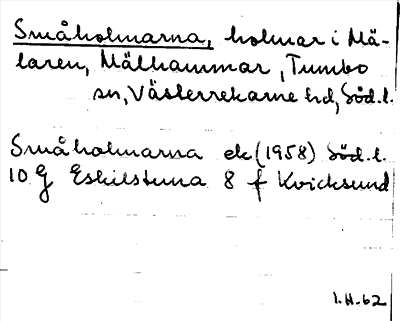 Småholmarna, holmar i Mä-
laren, Mälhammar, Tumbo
sn, Västerrekarne hd, Söd.l.
Småholmarna ek (1958) Söd.l.
10 G Eskilstuna 8 f Kvicksund
1.H.62